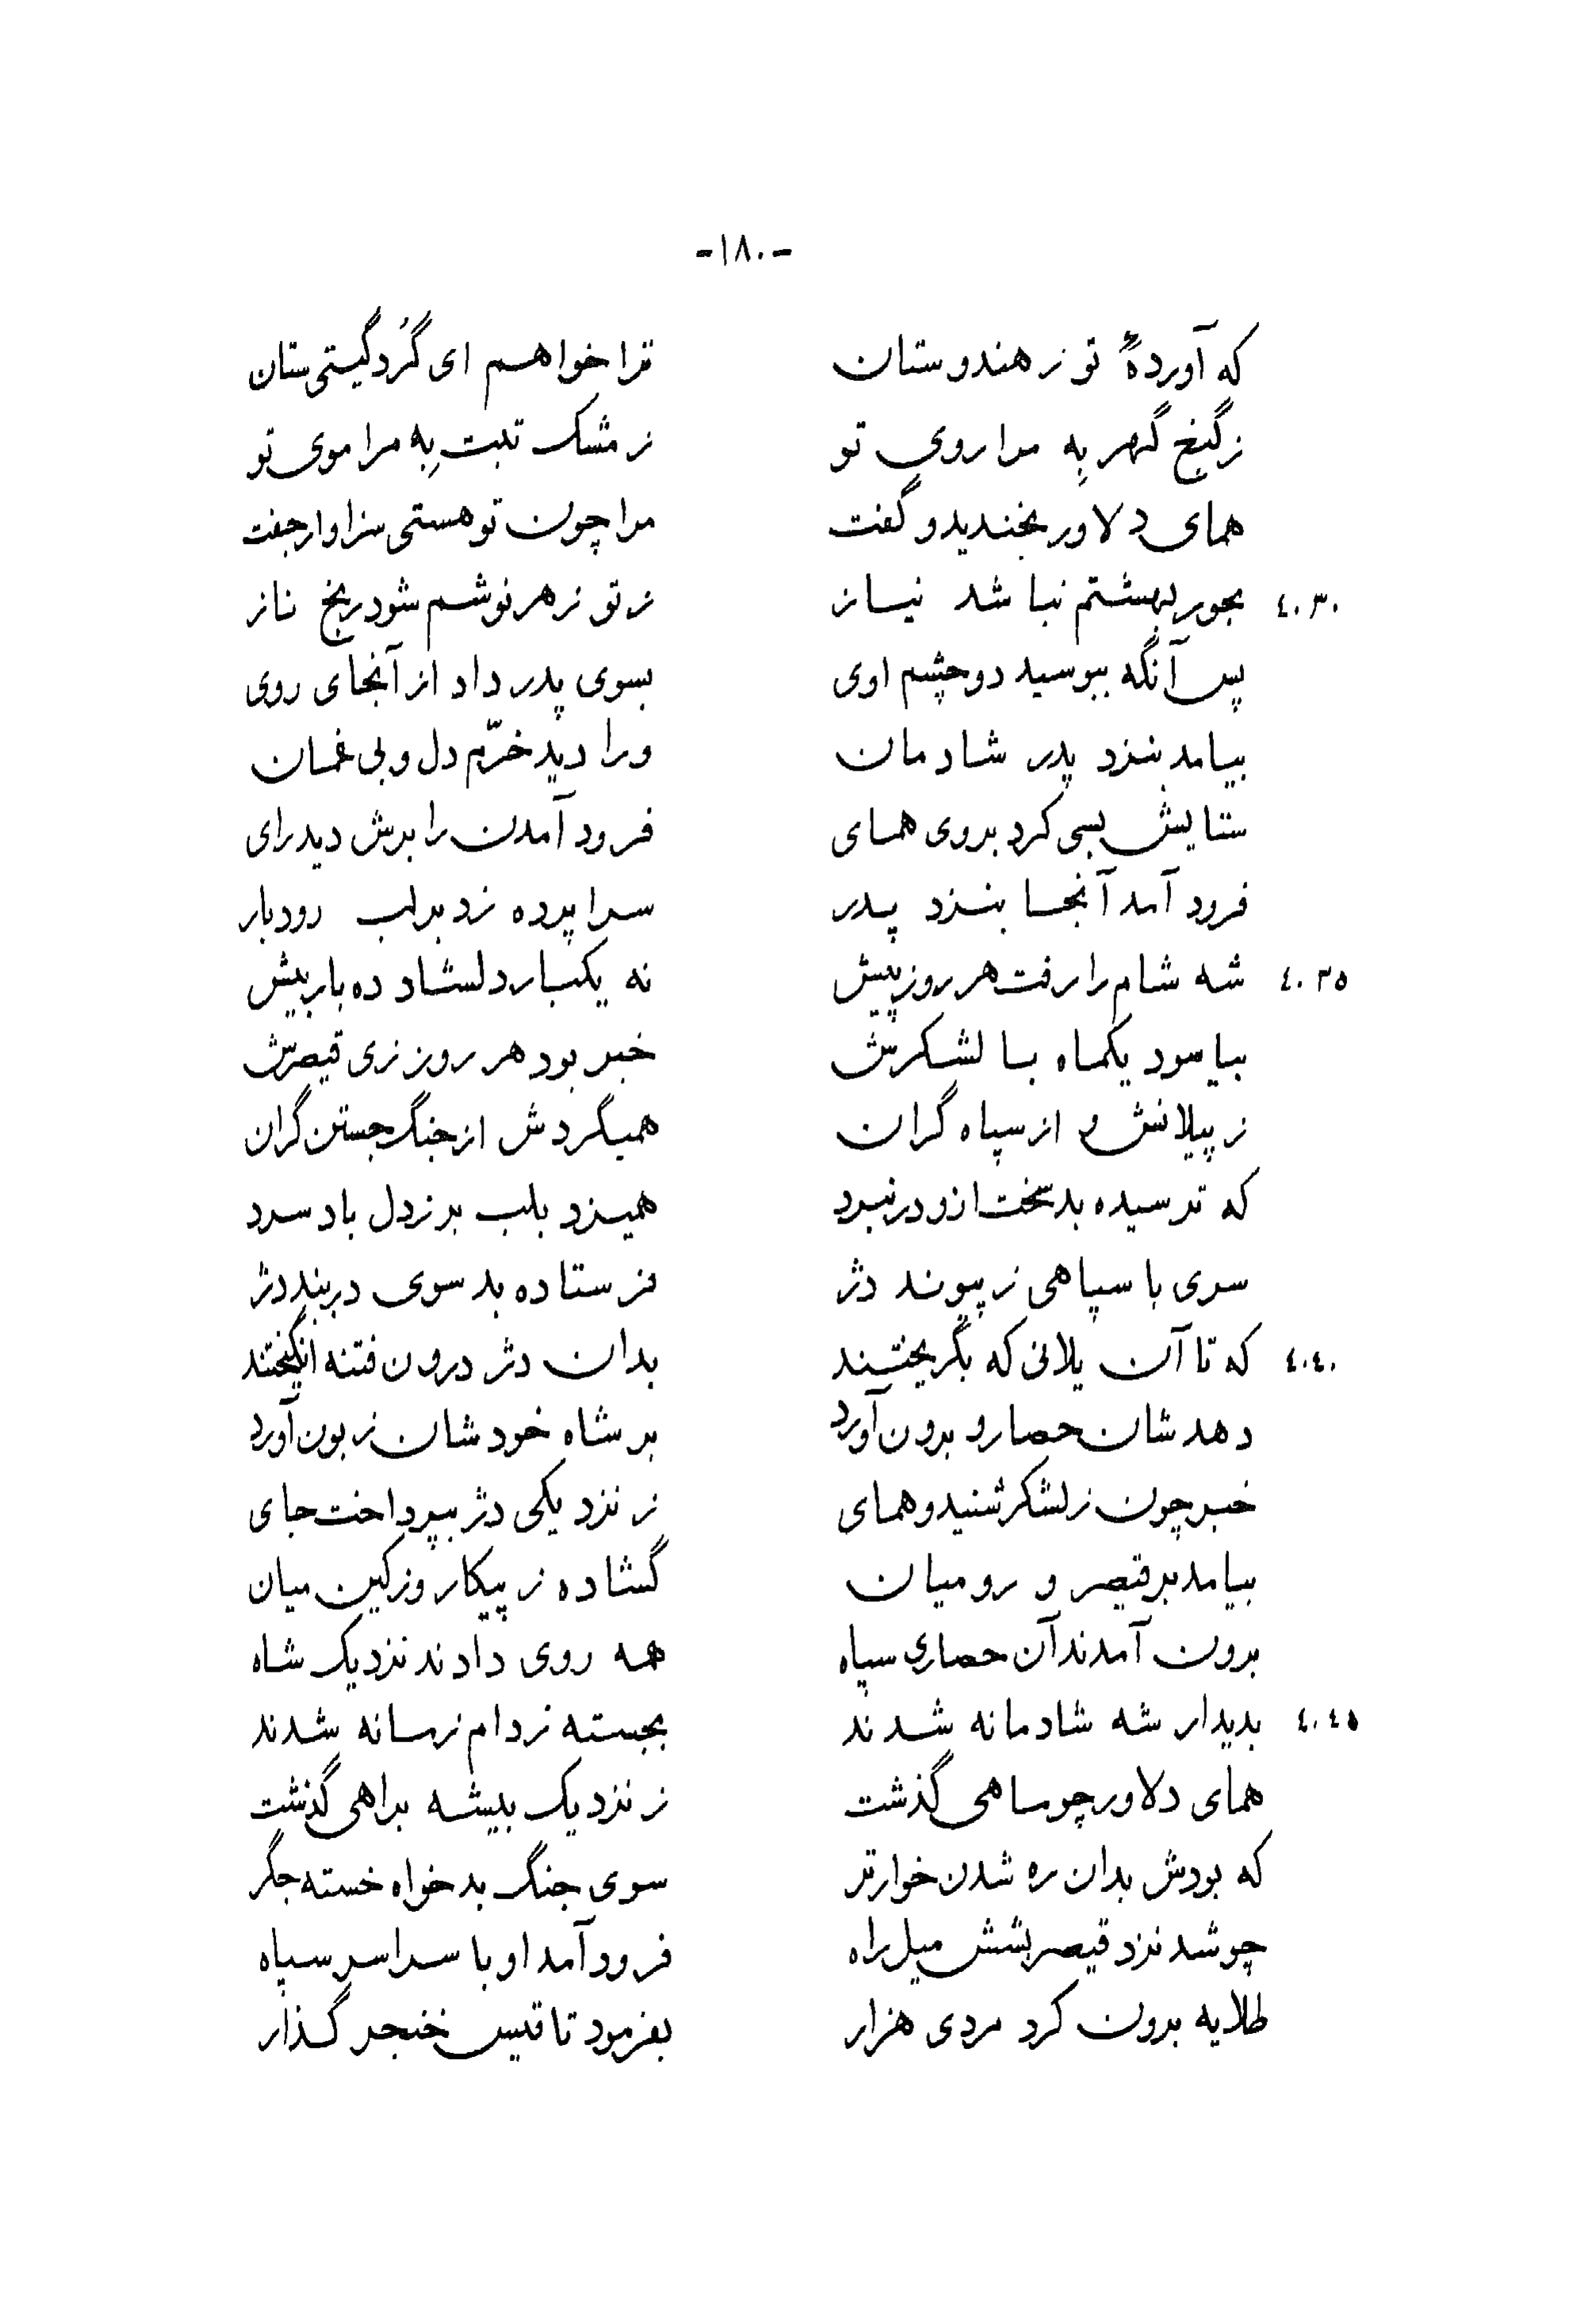 -۱۸۰-
که آوردهٔ تو ز هندوستان ترا خواهم ای گُرد گیتی ستان
ز گنج گهر بِه مرا روی تو ز مشک تبت بِه مرا موی تو
همای دلاور بخندید و گفت مرا چون تو هستی سزاوار جفت
۴۰۳۰ بحور بهشتم نباشد نیاز ز تو زهر نوشم شود رنج ناز
پس آنگه ببوسید دو چشم اوی بسوی پدر داد از آنجای روی
بیامد بنزد پدر شادمان ورا دید خرّم دل و بی غمان
ستایش بسی کرد بروی همای فرود آمدن را برش دید رای
فرود آمد آنجا بنزد پدر سراپرده زد بر لب رودبار
۴۰۳۵ شه شام را رفت هر روز پیش نه یکبار دلشاد ده بار بیش
بیاسود یکماه با لشکرش خبر بود هر روز زی قیصرش
ز پیلانش و از سپاه گران همیگردش از جنگ جستن گران
که ترسیده بد سخت ازو در نبرد همیزد بلب بر ز دل باد سرد
سری با سپاهی ز پیوند دژ فرستاده بد سوی دربند دژ
۴۰۴۰ که تا آن یلانی که بگریختند بدان دژ درون فتنه انگیختند
دهد شان حصار و برون آورد بر شاه خود شان زبون آورد
خبر چون ز لشکر شنید و همای ز نزدیکی دژ بپرداخت جای
بیامد بر قیصر و رومیان گشاده ز پیکار وز کین میان
برون آمدند آن حصاری سپاه همه روی دادند نزدیک شاه
۴۰۴۵ بدیدار شه شادمانه شدند بجسته ز دام زمانه شدند
همای دلاور چو ماهی گذشت ز نزدیک بیشه براهی گذشت
که بودش بدان ره شدن خوارتر سوی جنگ بدخواه خسته جگر
چو شد نزد قیصر بشش میل راه فرود آمد او با سراسر سپاه
طلایه برون کرد مردی هزار بفرمود تا قیس خنجر گذار